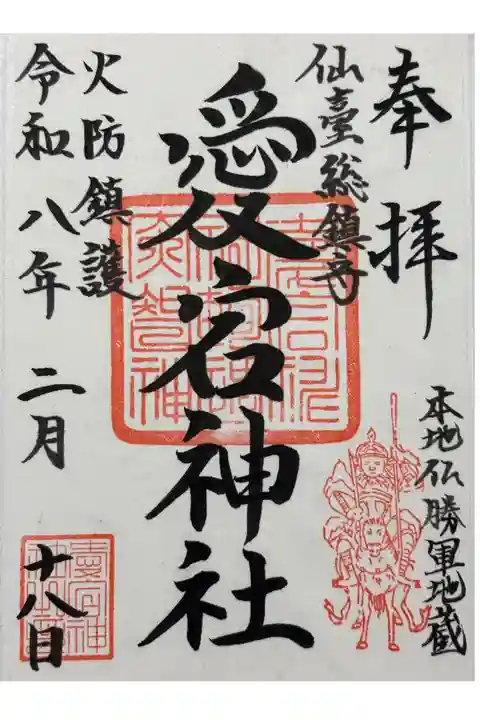 奉拝
仙臺総鎮守
本地仏勝軍地蔵
愛宕神社
火防鎮護
令和八年二月十八日